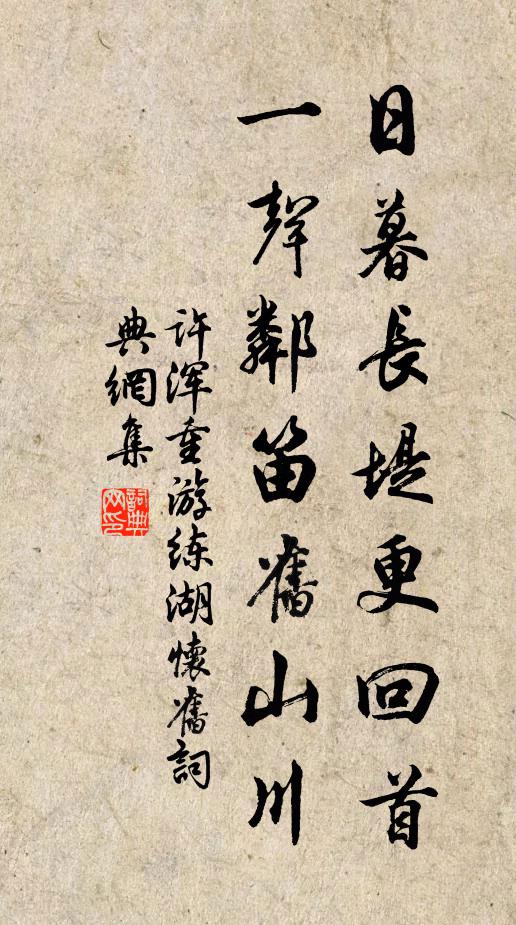 日暮長堤更回首
一聲鄰笛舊山川
许渾重游练湖懷舊詞
典網集
詞典网印